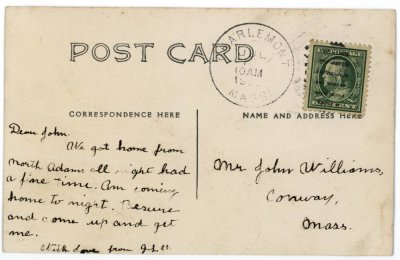 POST CARD
CHARLEMONT
JUL
10AM
MASS.
U.S. POSTAGE
CENT
CORRESPONDENCE HERE
NAME AND ADDRESS HERE
Dear John.
We got home from
North Adams all right had
a fine time. Am coming
home to night. Besure
and come up and get
me.
With Love from
Mr John Williams,
Conway,
Mass.